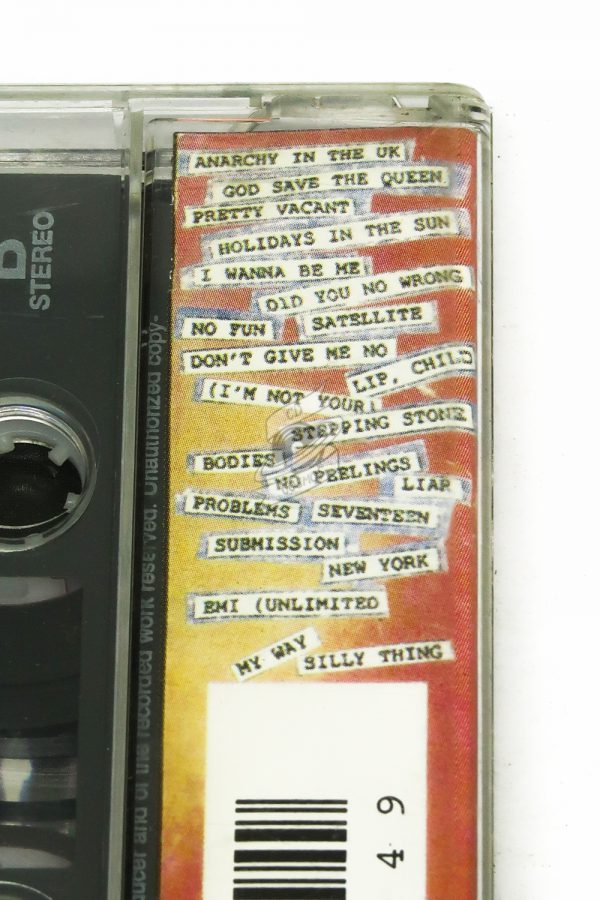 ANARCHY IN THE UK
GOD SAVE THE QUEEN
PRETTY VACANT
HOLIDAYS IN THE SUN
I WANNA BE ME
DID YOU NO WRONG
NO FUN
SATELLITE
DON'T GIVE ME NO
LIP, CHILD
(I'M NOT YOUR)
STEPPING STONE
BODIES
NO FEELINGS
LIAR
PROBLEMS
SEVENTEEN
SUBMISSION
NEW YORK
EMI (UNLIMITED
MY WAY
SILLY THING
STEREO
ducer and of the recorded work reserved. Unauthorized copy-
4 9